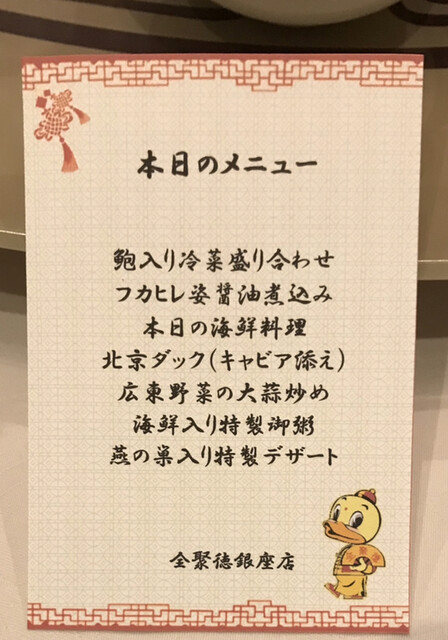 本日のメニュー
鮑入り冷菜盛り合わせ
フカヒレ姿醤油煮込み
本日の海鮮料理
北京ダック(キャビア添え)
広東野菜の大蒜炒め
海鮮入り特製御粥
燕の巣入り特製デザート
全聚徳銀座店